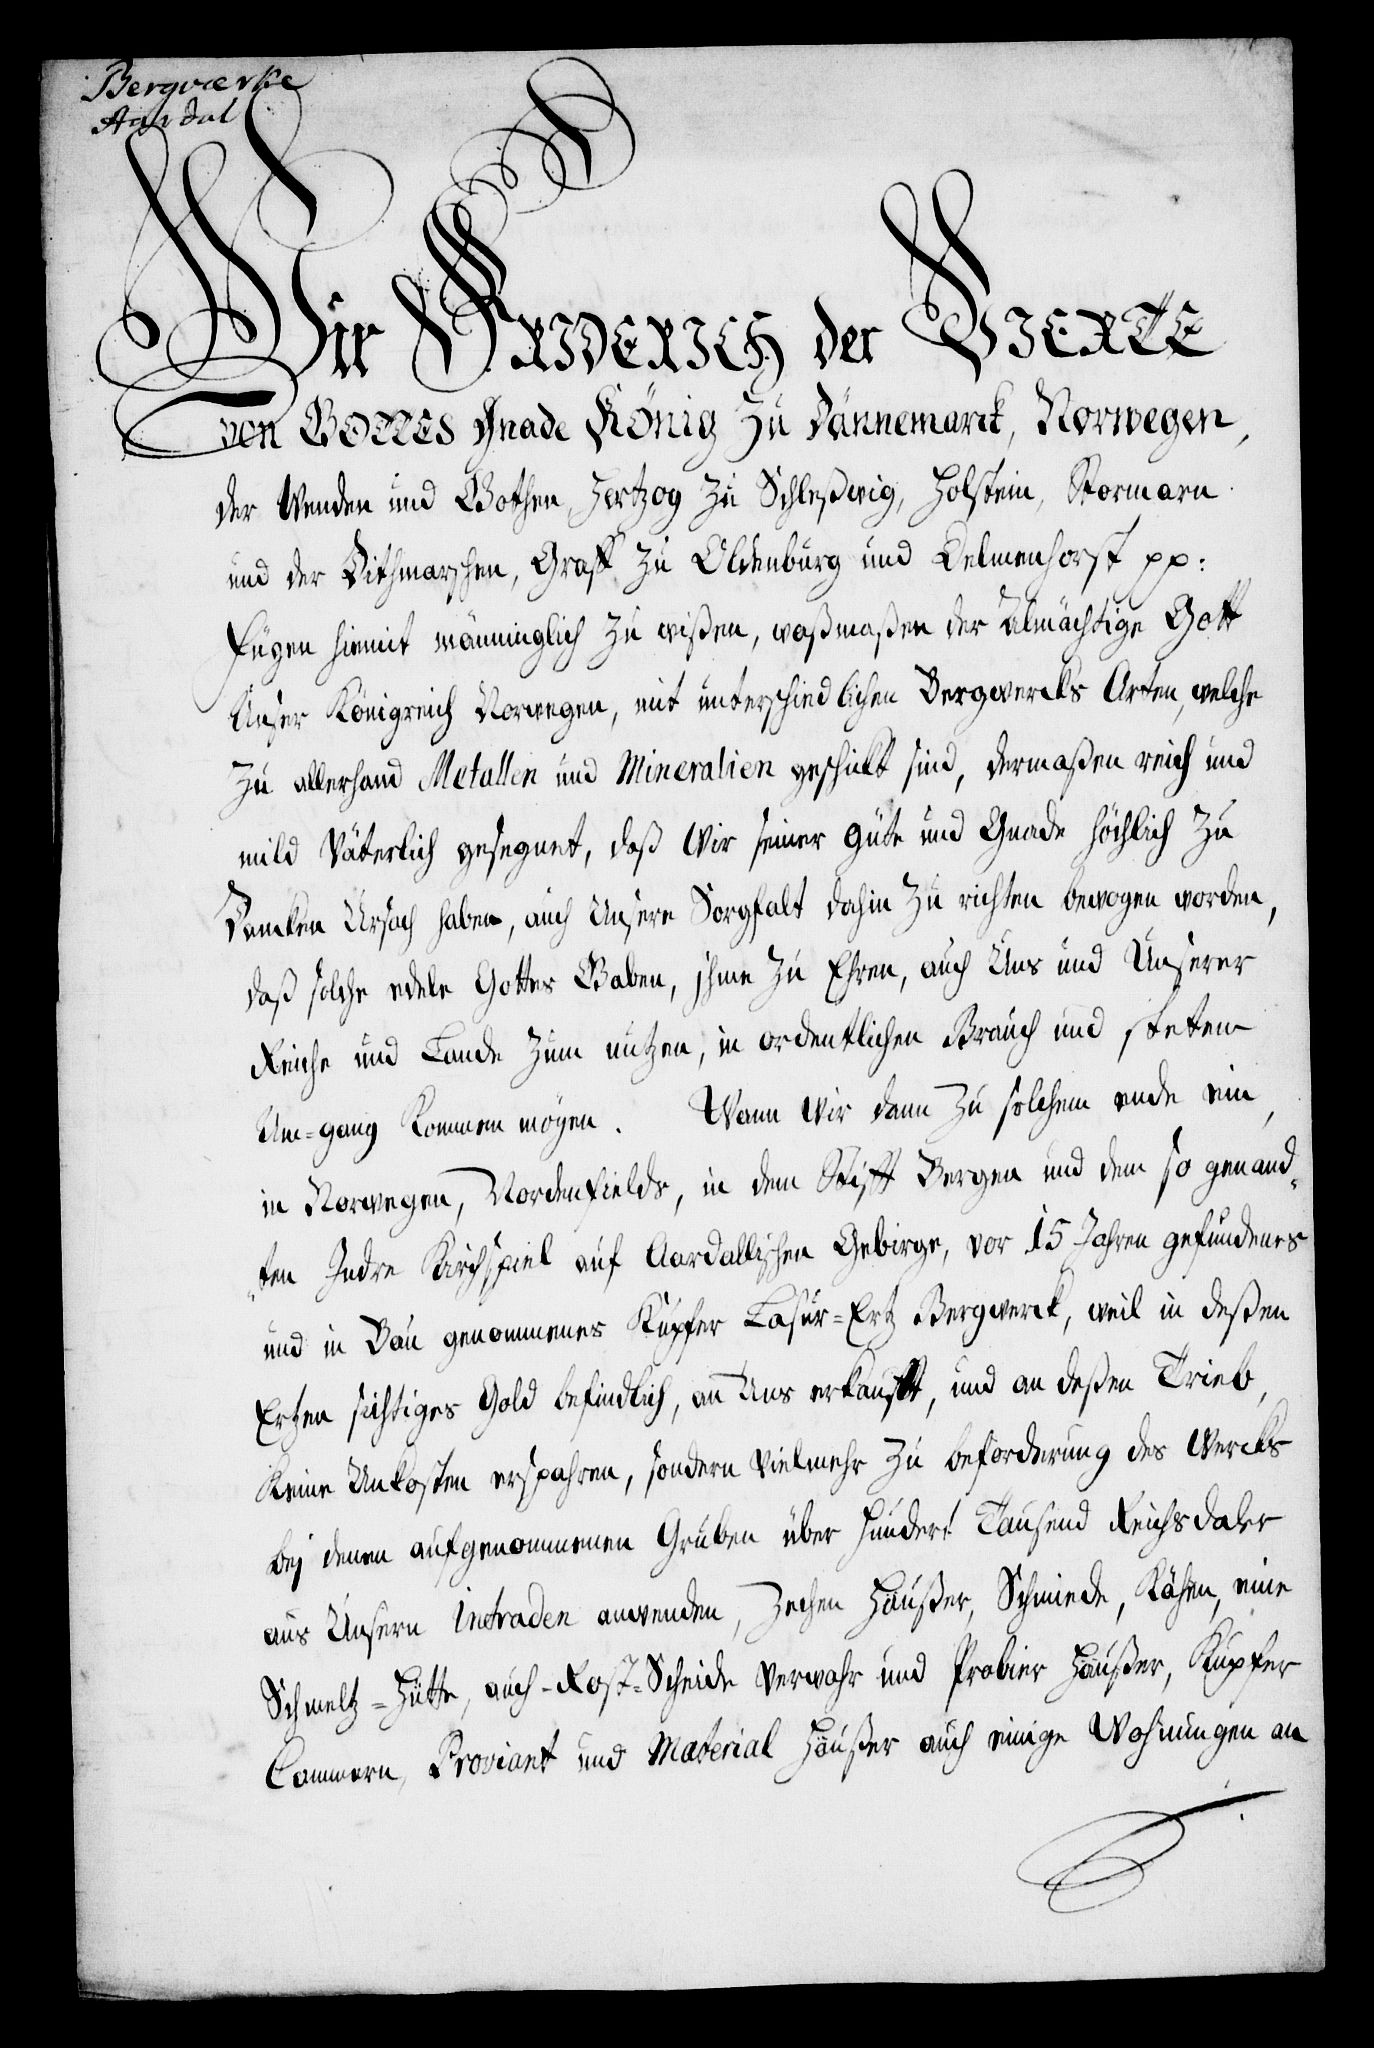 Bergværke
Aardal
Wir FRIDERICH der VIERTE
von GOTTES Gnade König Zu Dännemarck, Norwegen,
der Wenden und Gothen, Hertzog Zu Schleßwig, Holstein, Stormarn
und der Dithmarschen, Graff Zu Oldenburg und Delmenhorst pp:
fügen hiemit männinglich Zu wißen, waßmaßen der Almächtige Gott
Unser Königreich Norwegen, mit unterschiedlichen Bergwercks Arten, welche
Zu allerhand Metallen und Mineralien geschickt sind, dermaßen reich und
mild Väterlich gesegnet, daß Wir seiner Güte und Gnade höchlich Zu
Dancken Ursach haben, auch Unsere Sorgfalt dahin Zu richten bewogen worden,
daß solche edele Gottes Gaben, jhme Zu Ehren, auch Uns und Unserer
Reiche und Lande Zum nutzen, in ordentlichen Brauch und steten
Um=gang Kommen mögen. Wann Wir dann Zu solchem ende ein,
in Norwegen, Nordenfields, in dem Stifft Bergen und dem so genand„
„ten Indre Kirchspiel auf Aardallischen Gebirge, vor 15 Jahren gefundenes
und in Bau genommenes Kupfer Lasur=Ertz Bergwerck, weil in deßen
Ertzen sichtiges Gold befindlich, an Uns erkaufft, und an deßen Trieb,
Keine Unkosten ersparen, sondern vielmehr Zu beforderung des Wercks
bej denen aufgenommenen Gruben über hundert Tausend Reichsdaler
aus Unsern Intraden anwenden, Zechen Häußer, Schmiede, Kähen, eine
Schmeltz=Hütte, auch Rost=Scheide Verwahr und Probier Häußer, Kupfer
Cammern, Proviant und Material Häußer auch einige Wohnungen an